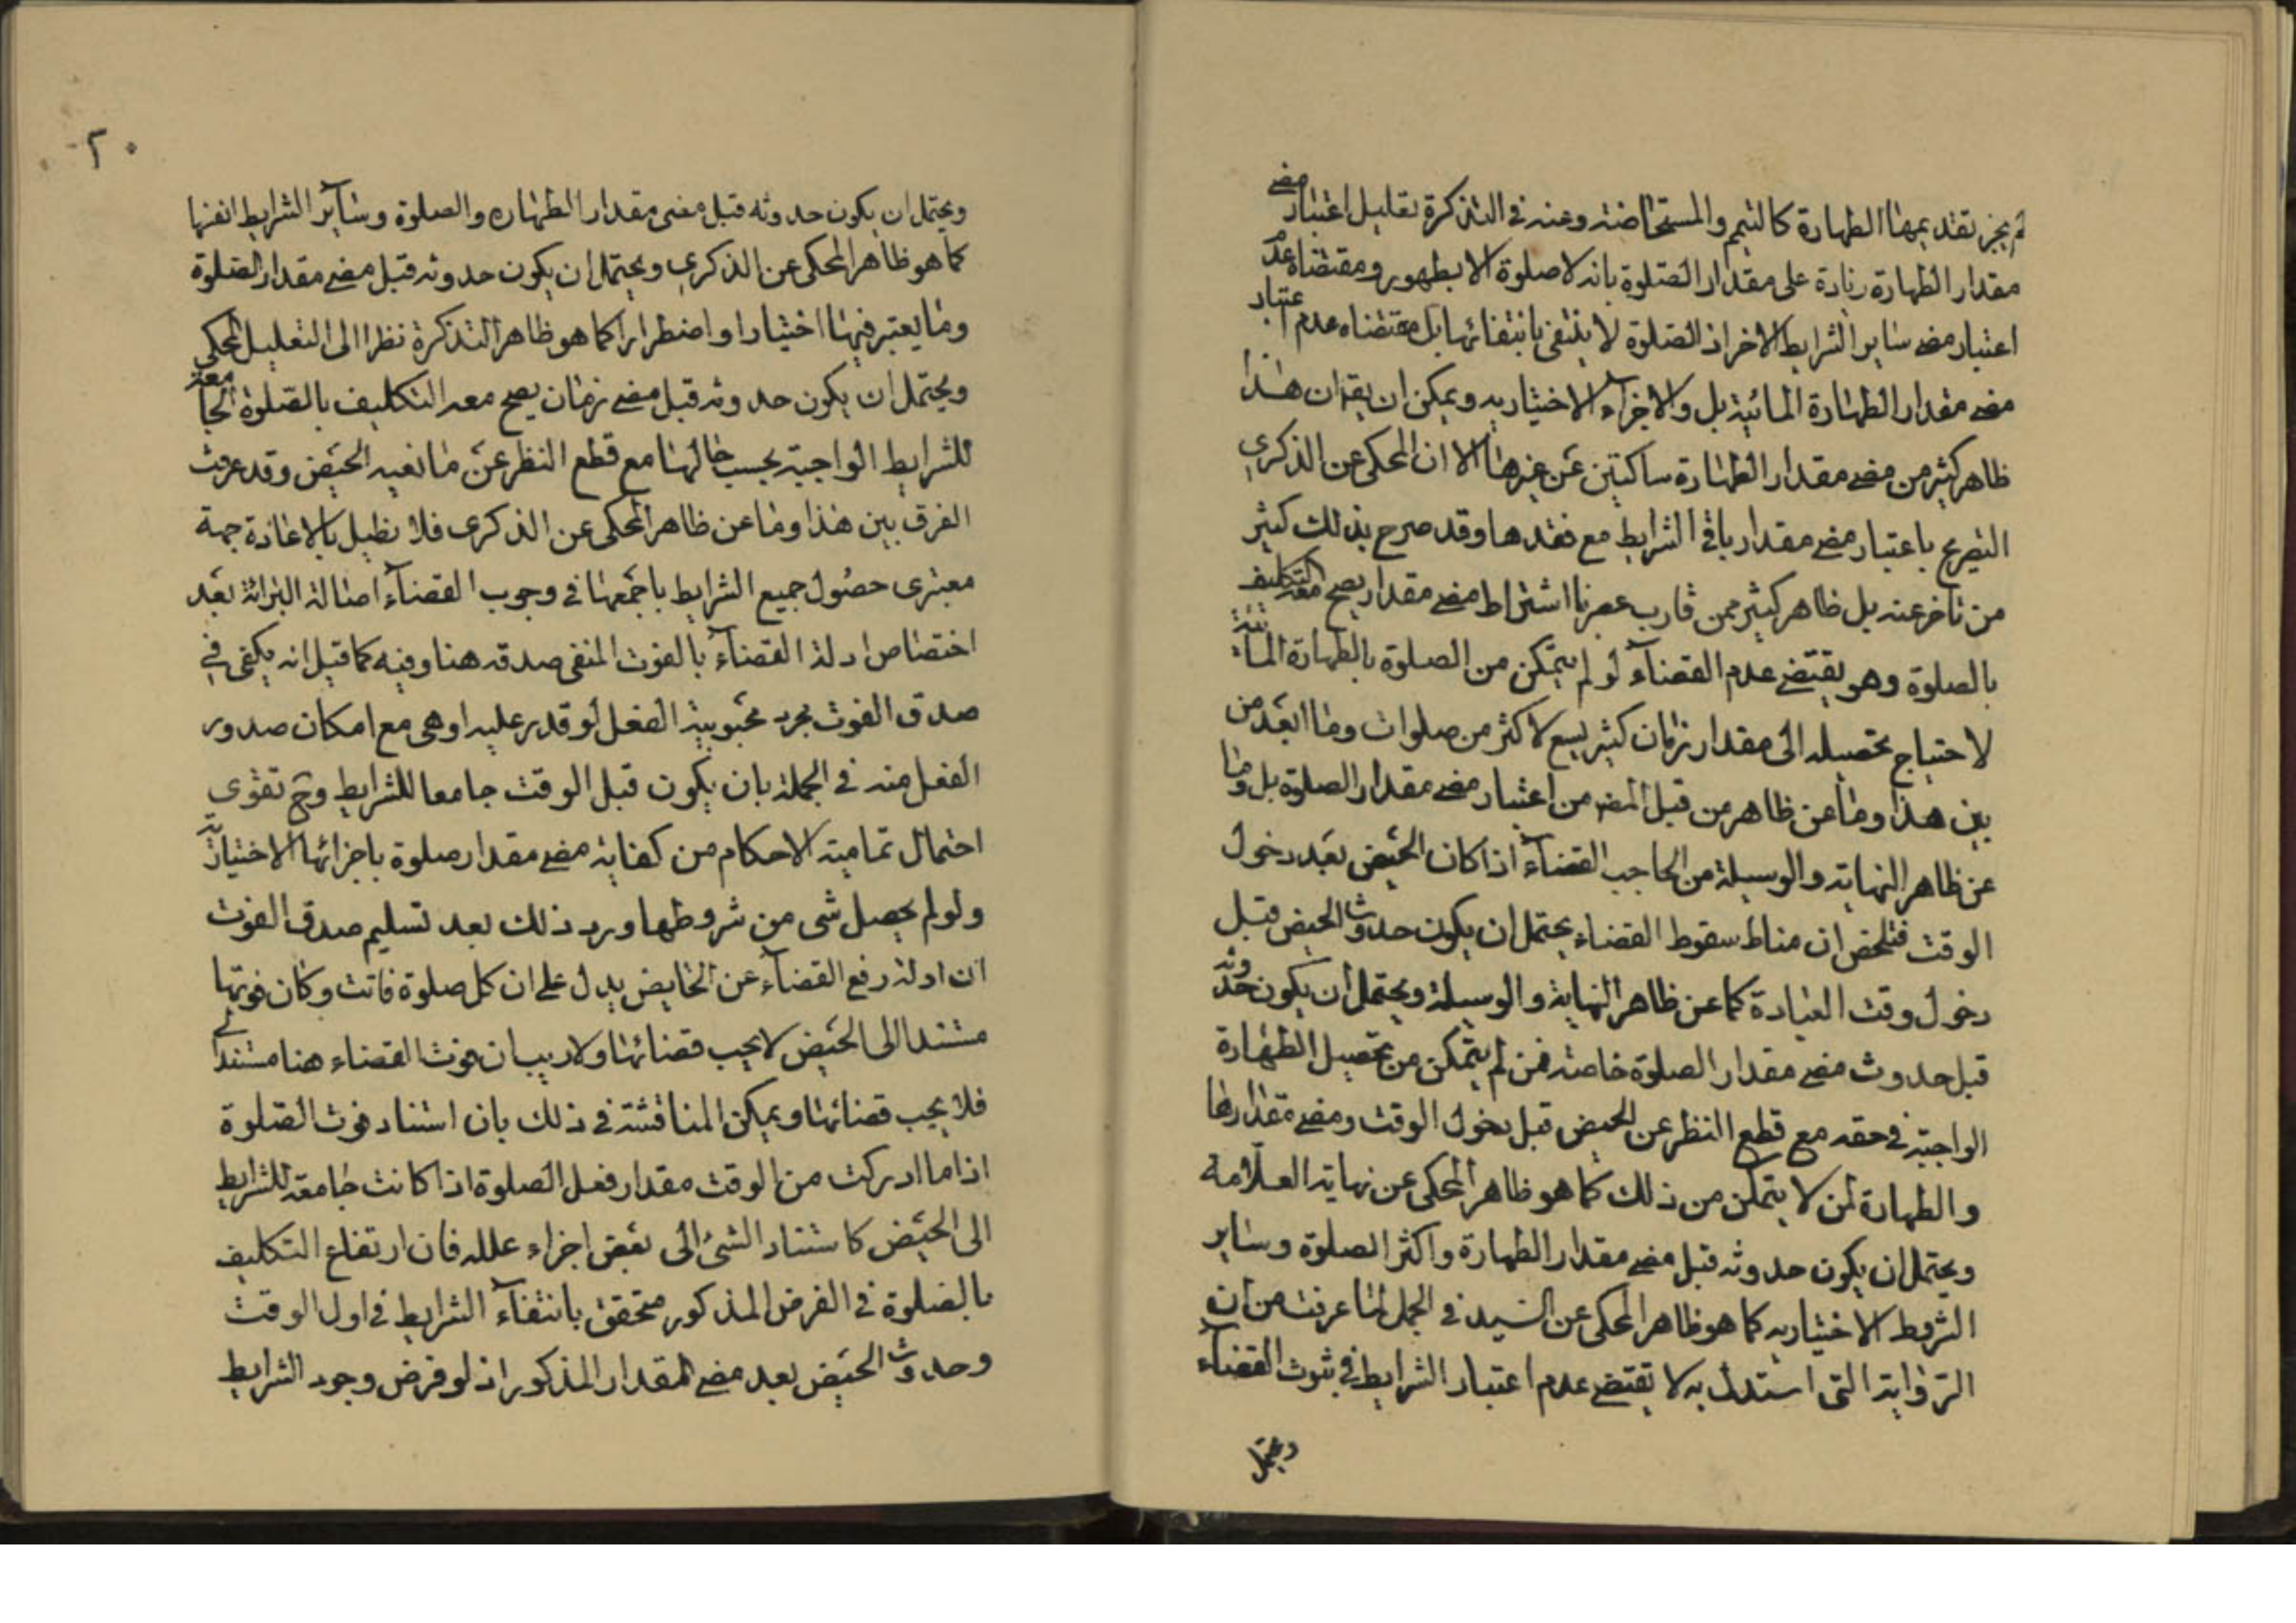 لم يجز تقديمها الطهارة كالتيمم والمستحاضة وعنه في التذكرة تعليل اعتبار مضے
مقدار الطهارة زيادة على مقدار الصلوة بانه لا صلوة الا بطهور ومقتضاه عدم
اعتبار مضے ساير الشرايط الاخر اذ الصلوة لا ينتفى بانتفائها بل مقتضاه عدم اعتبار
مضے مقدار الطهارة المائية بل والاجزاء الاختياريه ويمكن ان يقر ان هذا
ظاهر كثير من مضے مقدار الطهارة ساكتين عن غيرها الا ان المحكى عن الذكرى
التصريح باعتبار مضے مقدار باقى الشرايط مع فقدها وقد صرح بذلك كثير
من تاخر عنه بل ظاهر كثير ممن قارب عصرنا اشتراط مضے مقدار يصح معه التكليف
بالصلوة وهو يقتضے عدم القضاء لو لم يتمكن من الصلوة بالطهارة المائية
لاحتياج تحصيله الى مقدار زمان كثير يسع لاكثر من صلوات وما ابعد من
بين هذا وما عن ظاهر من قبل المضے من اعتبار مضے مقدار الصلوة بل وما
عن ظاهر النهاية والوسيلة من الحاجب القضاء اذا كان الحيض بعد دخول
الوقت فتلخص ان مناط سقوط القضاء يحتمل ان يكون حدوث الحيض قبل
دخول وقت العبادة كما عن ظاهر النهاية والوسيلة ويحتمل ان يكون حدوثه
قبل حدوث مضے مقدار الصلوة خاصة فمن لم يتمكن من تحصيل الطهارة
الواجبة في حقه مع قطع النظر عن الحيض قبل دخول الوقت ومضے مقدارها
والطهارة لمن لا يتمكن من ذلك كما هو ظاهر المحكى عن نهاية العلامة
ويحتمل ان يكون حدوثه قبل مضے مقدار الطهارة واكثر الصلوة وساير
الشروط الاختياريه كما هو ظاهر المحكى عن السيد في الجمل لما عرفت من ان
الرواية التى استدل به لا يقتضے عدم اعتبار الشرايط في ثبوت القضاء
ويحتمل
٢٠
ويحتمل ان يكون حدوثه قبل مضى مقدار الطهاره والصلوة وساير الشرايط
كما هو ظاهر المحكى عن الذكرى ويحتمل ان يكون حدوثه قبل مضے مقدار الصلوة
وما يعتبر فيها اختيارا واضطرارا كما هو ظاهر التذكرة نظرا الى التعليل المحكى
ويحتمل ان يكون حدوثه قبل مضے زمان يصح معه التكليف بالصلوة الجامعة
للشرايط الواجبة بحسب حالها مع قطع النظر عن مانعيه الحيض وقد عرفت
الفرق بين هذا وما عن ظاهر المحكى عن الذكرى فلا نطيل بالاعادة حجة
معتبرى حصول جميع الشرايط باجمعها في وجوب القضاء اصالة البرائة بعد
اختصاص ادلة القضاء بالفوت المنفى صدقه هنا وفيه كما قيل انه يكفى في
صدق الفوت مجرد محبوبية الفعل لو قدر عليه او هى مع امكان صدور
الفعل منه في الجملة بان يكون قبل الوقت جامعا للشرايط وح تقوى
احتمال تمامية الاحكام من كفاية مضے مقدار صلوة باجزائها الاختيارية
ولو لم يحصل شى من شروطها ورد ذلك بعد تسليم صدق الفوت
ان ادلة رفع القضاء عن الحايض يدل على ان كل صلوة فاتت وكان فوتها
مستندا الى الحيض لا يجب قضائها ولا ريب ان فوت القضاء هنا مستند
فلا يجب قضائها ويمكن المناقشة في ذلك بان استناد فوت الصلوة
اذا ما ادركت من الوقت مقدار فعل الصلوة اذا كانت جامعة للشرايط
الى الحيض كاستناد الشئ الى بعض اجزاء علله فان ارتفاع التكليف
بالصلوة في الفرض المذكور متحقق بانتفاء الشرايط في اول الوقت
وحدوث الحيض بعد مضے المقدار المذكور اذ لو فرض وجود الشرايط